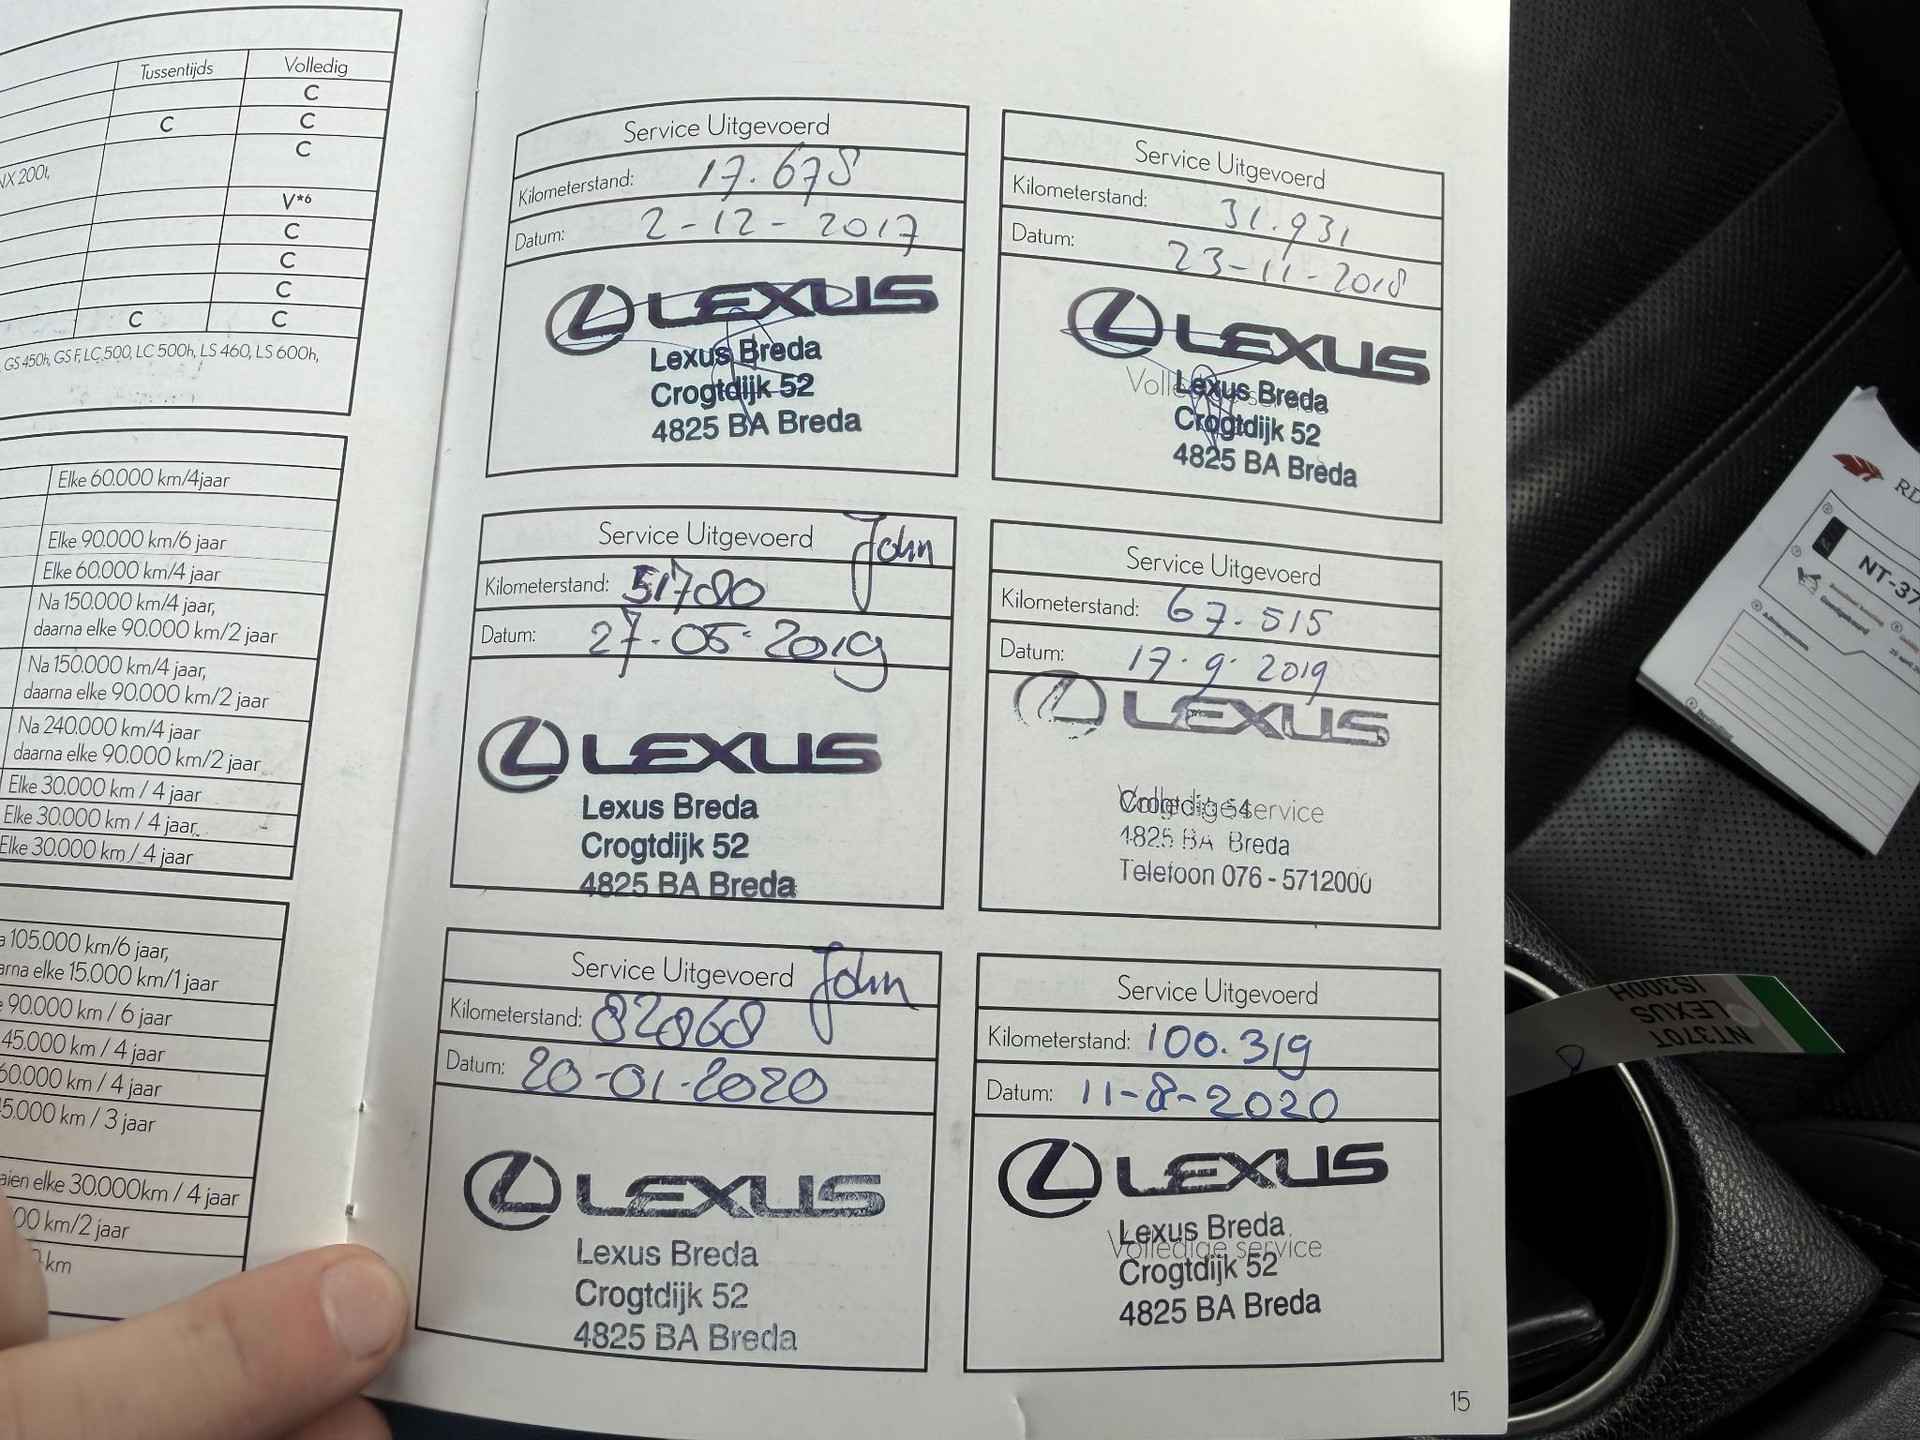 Tussentijds Volledig
C
C C
C
NX 200t,
V*6
C
C
C
C C
GS 450h, GS F, LC 500, LC 500h, LS 460, LS 600h,
Elke 60.000 km/4jaar
Elke 90.000 km/6 jaar
Elke 60.000 km/4 jaar
Na 150.000 km/4 jaar,
daarna elke 90.000 km/2 jaar
Na 150.000 km/4 jaar,
daarna elke 90.000 km/2 jaar
Na 240.000 km/4 jaar
daarna elke 90.000 km/2 jaar
Elke 30.000 km / 4 jaar
Elke 30.000 km / 4 jaar
Elke 30.000 km / 4 jaar
a 105.000 km/6 jaar,
arna elke 15.000 km/1 jaar
90.000 km / 6 jaar
45.000 km / 4 jaar
60.000 km / 4 jaar
5.000 km / 3 jaar
aien elke 30.000km / 4 jaar
00 km/2 jaar
km
Service Uitgevoerd
Kilometerstand: 17.678
Datum: 2-12-2017
LEXUS
Lexus Breda
Crogtdijk 52
4825 BA Breda
Service Uitgevoerd
Kilometerstand: 31.931
Datum: 23-11-2018
LEXUS
Volledige service
Lexus Breda
Crogtdijk 52
4825 BA Breda
Service Uitgevoerd John
Kilometerstand: 51780
Datum: 27-05-2019
LEXUS
Lexus Breda
Crogtdijk 52
4825 BA Breda
Service Uitgevoerd
Kilometerstand: 67.515
Datum: 17-9-2019
LEXUS
Volledige service
Crogtdijk 54
4825 BA Breda
Telefoon 076 - 5712000
Service Uitgevoerd John
Kilometerstand: 82868
Datum: 20-01-2020
LEXUS
Lexus Breda
Crogtdijk 52
4825 BA Breda
Service Uitgevoerd
Kilometerstand: 100.319
Datum: 11-8-2020
LEXUS
Lexus Breda
Volledige service
Crogtdijk 52
4825 BA Breda
15
RD
NT-37
Goedgekeurd
Adviespunten
NT370T
LEXUS
IS300H